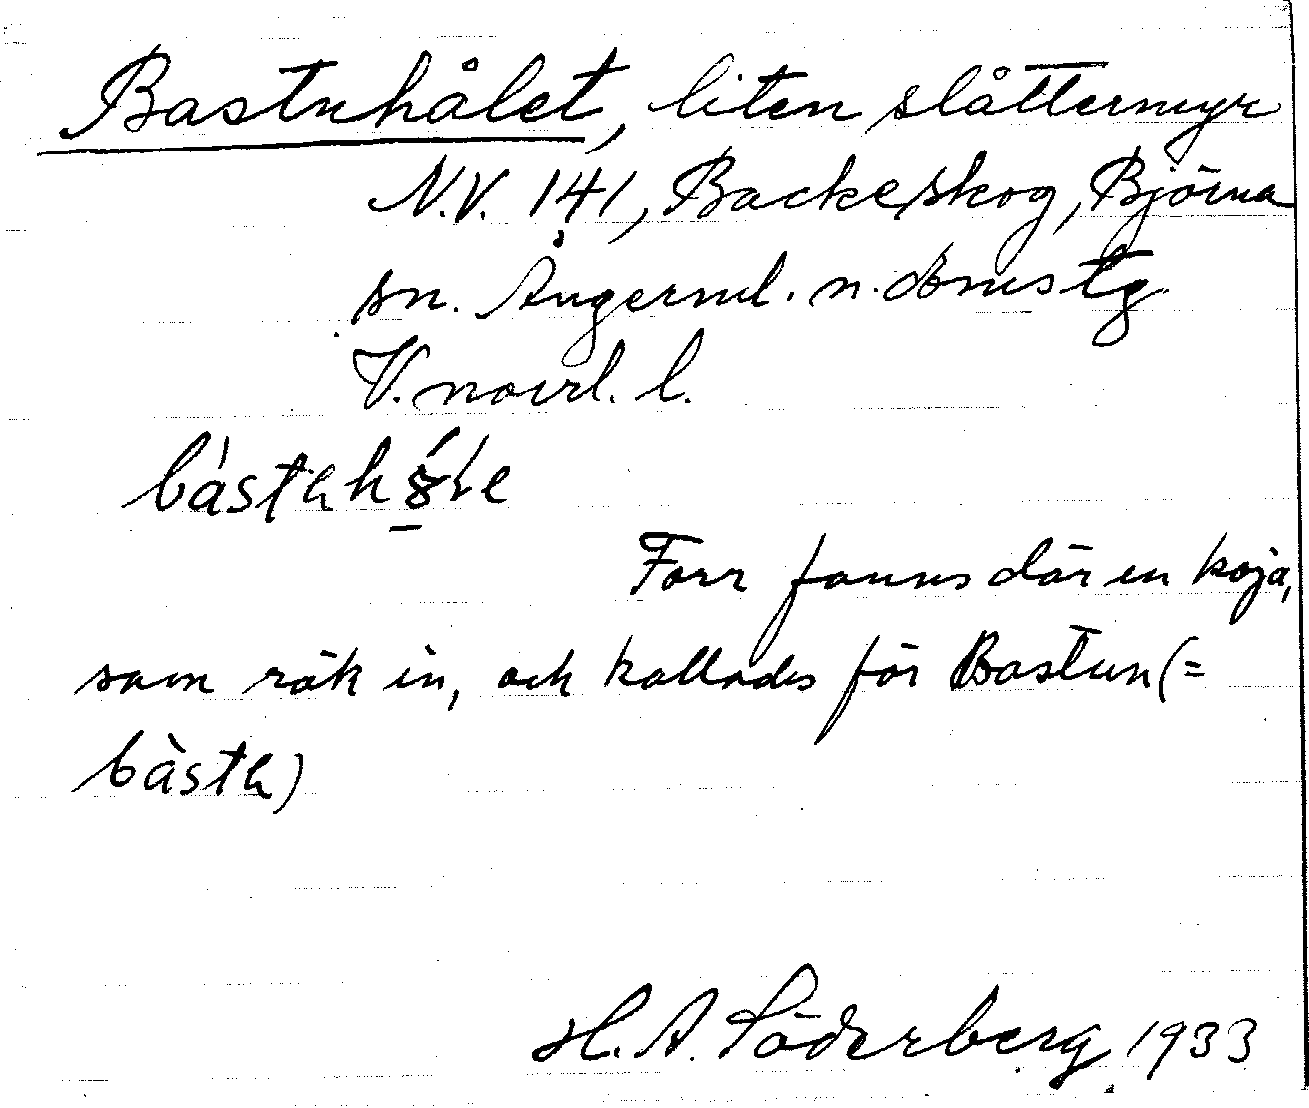 Bastuhålet, liten slåttermyr
N.V. 141, Backe, Skog, Björna
sn. Ångerml. n. domstg
V. norrl. l.
Förr fanns där en koja,
som rök in, och kallades för Bastun (=
H. A. Söderberg 1933